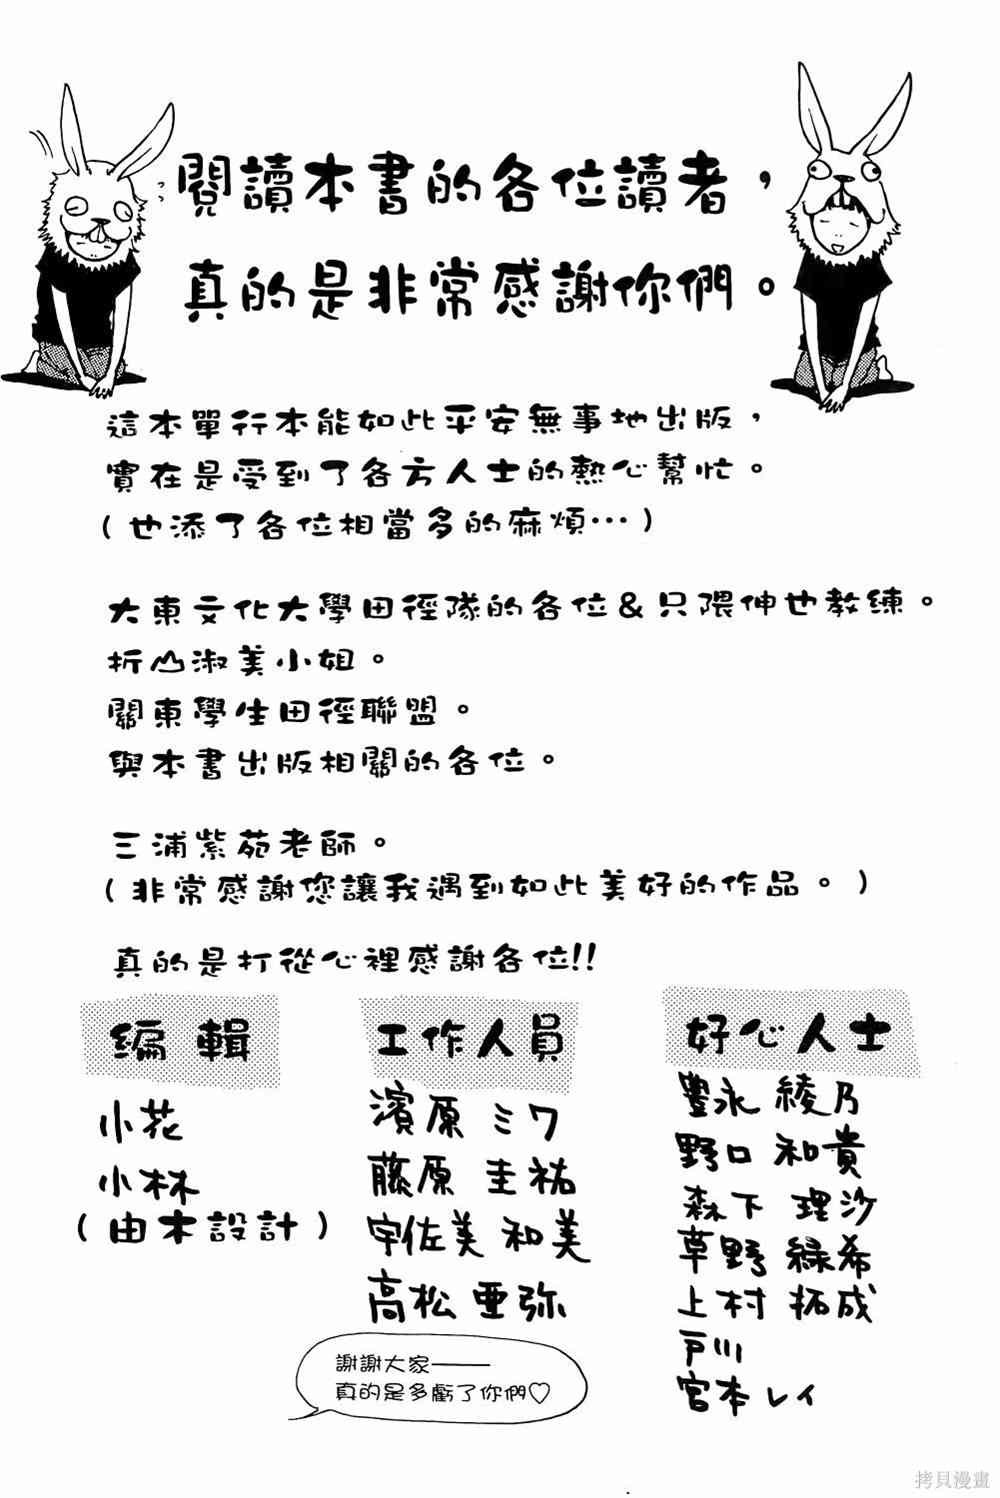 閱讀本書的各位讀者，
真的是非常感謝你們。
這本單行本能如此平安無事地出版，
實在是受到了各方人士的熱心幫忙。
（也添了各位相當多的麻煩…）
大東文化大學田徑隊的各位＆只隈伸也教練。
折山淑美小姐。
關東學生田徑聯盟。
與本書出版相關的各位。
三浦紫苑老師。
（非常感謝您讓我遇到如此美好的作品。）
真的是打從心裡感謝各位!!
編輯
小花
小林
（由木設計）
工作人員
濱原 ミワ
藤原 圭祐
宇佐美 和美
高松 亜弥
好心人士
豊永 綾乃
野口 和貴
森下 理沙
草野 緑希
上村 拓成
戸川
宮本 レイ
謝謝大家——
真的是多虧了你們♡
拷貝漫畫